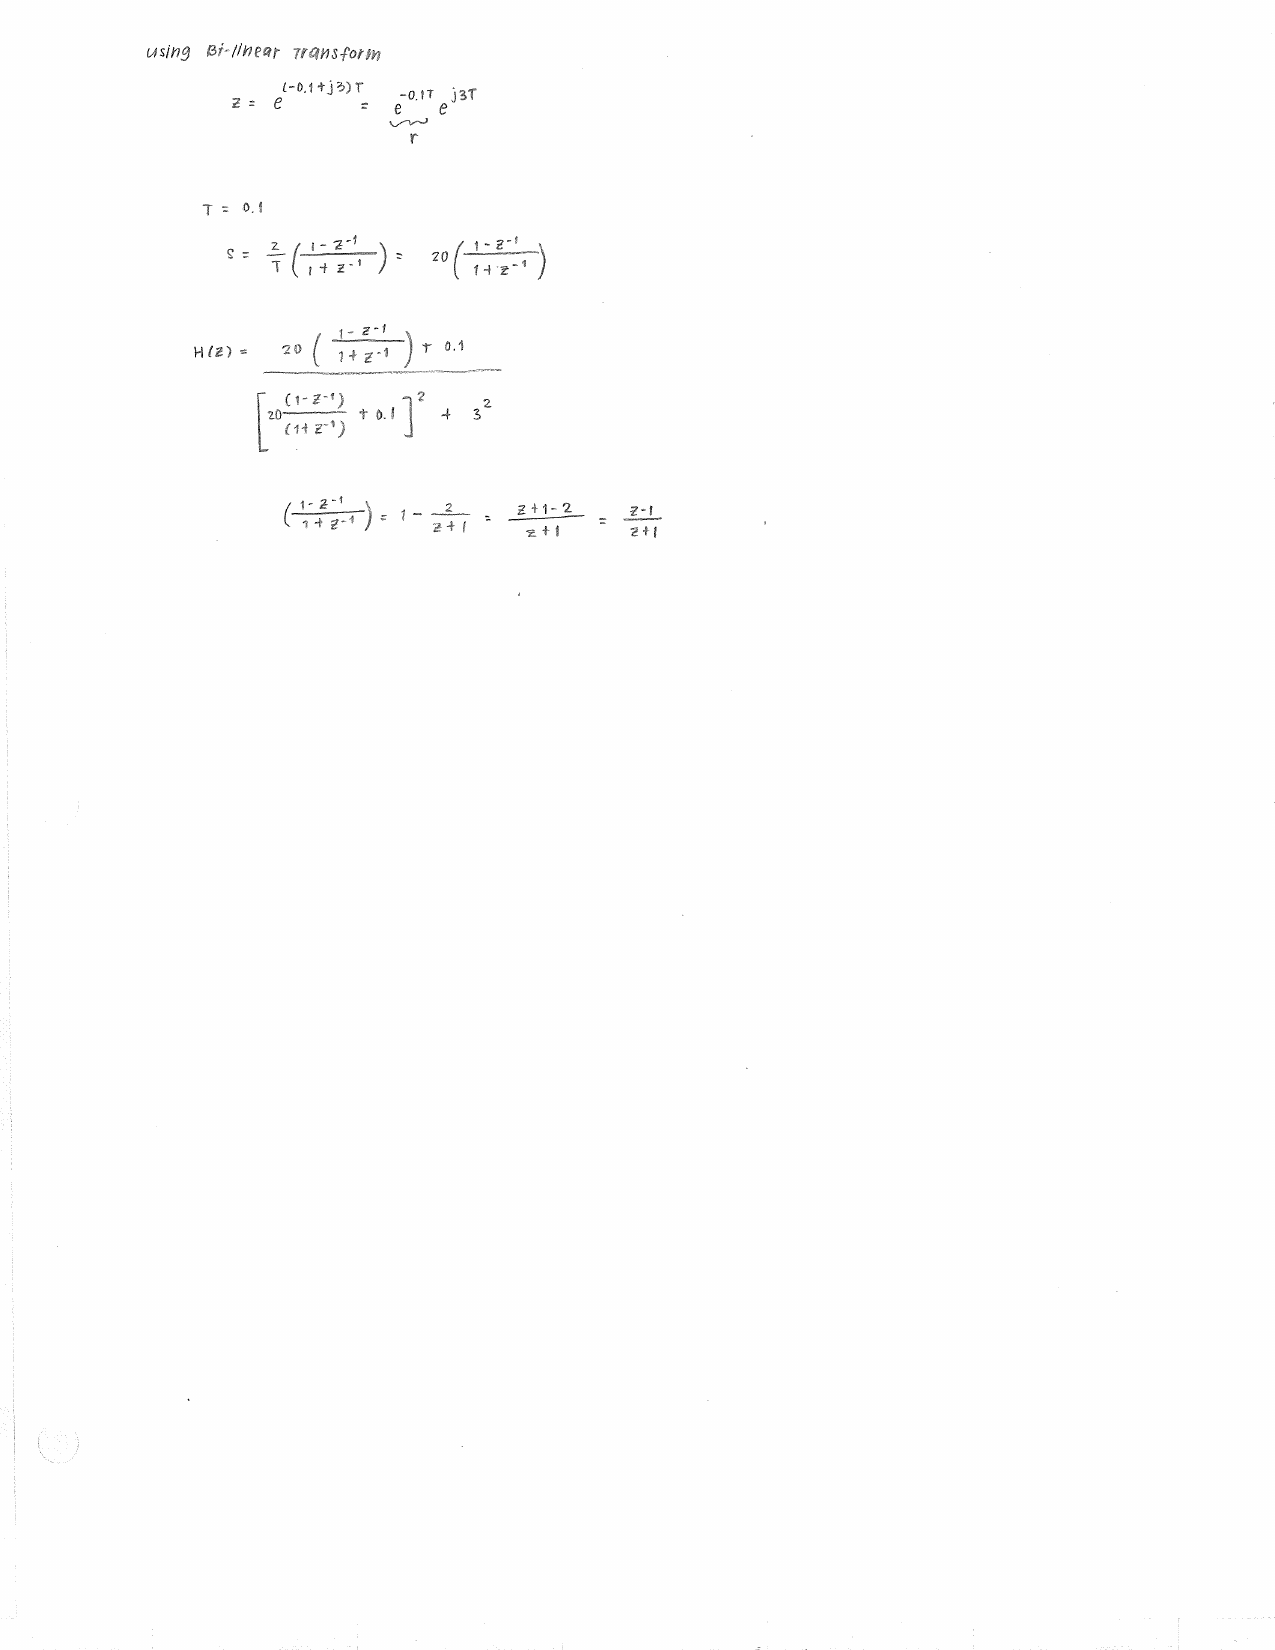 using Bi-linear Transform
z = e^{(-0.1+j3)T} = e^{-0.1T} e^{j3T}
r
T = 0.1
S = \frac{2}{T} \left( \frac{1 - z^{-1}}{1 + z^{-1}} \right) = 20 \left( \frac{1 - z^{-1}}{1 + z^{-1}} \right)
H(z) = \frac{20 \left( \frac{1 - z^{-1}}{1 + z^{-1}} \right) + 0.1}{\left[ 20 \frac{(1 - z^{-1})}{(1 + z^{-1})} + 0.1 \right]^2 + 3^2}
\left( \frac{1 - z^{-1}}{1 + z^{-1}} \right) = 1 - \frac{2}{z + 1} = \frac{z + 1 - 2}{z + 1} = \frac{z - 1}{z + 1}